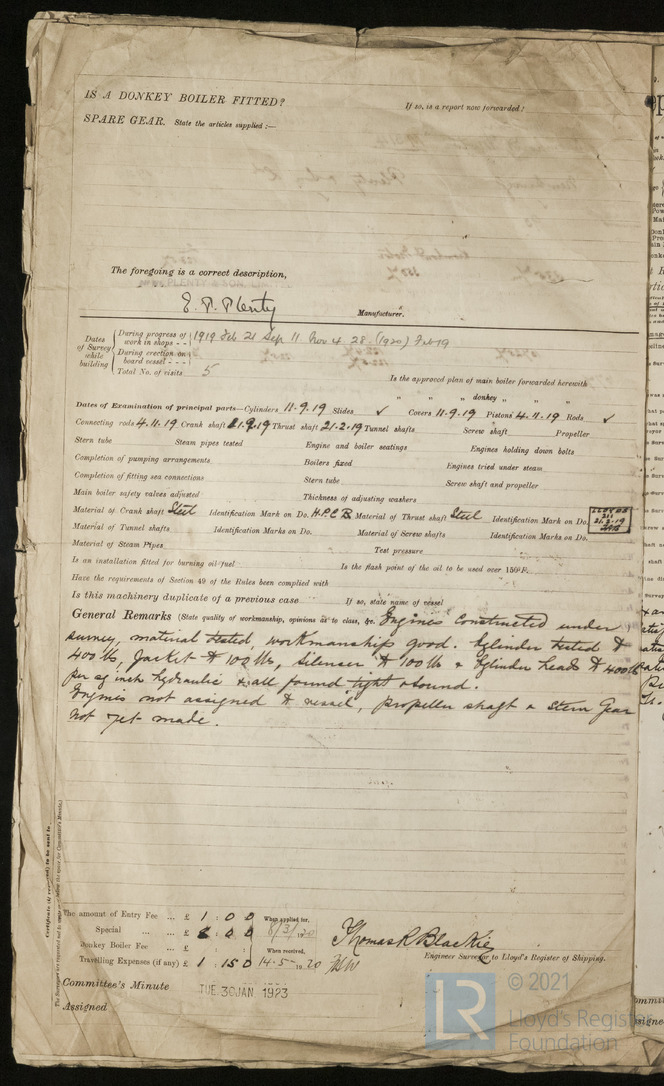 IS A DONKEY BOILER FITTED?
If so, is a report now forwarded?
SPARE GEAR. State the articles supplied :—
The foregoing is a correct description,
PLENTY & SON, LIMITED
E. P. Plenty Manufacturer.
Dates of Survey while building
During progress of work in shops - - 1919 Feb 21 Sep 11 Nov 4. 28. (1920) Feb 19
During erection on board vessel - - -
Total No. of visits 5
Is the approved plan of main boiler forwarded herewith
" " " donkey " " "
Dates of Examination of principal parts—Cylinders 11.9.19 Slides ✓ Covers 11.9.19 Pistons 4.11.19 Rods ✓
Connecting rods 4.11.19 Crank shaft 11.9.19 Thrust shaft 21.2.19 Tunnel shafts Screw shaft Propeller
Stern tube Steam pipes tested Engine and boiler seatings Engines holding down bolts
Completion of pumping arrangements Boilers fixed Engines tried under steam
Completion of fitting sea connections Stern tube Screw shaft and propeller
Main boiler safety valves adjusted Thickness of adjusting washers
Material of Crank shaft Steel Identification Mark on Do. Material of Thrust shaft Steel Identification Mark on Do. LLOYDS 211 21.2.19
Material of Tunnel shafts Identification Marks on Do. Material of Screw shafts Identification Marks on Do.
Material of Steam Pipes Test pressure
Is an installation fitted for burning oil fuel Is the flash point of the oil to be used over 150°F.
Have the requirements of Section 49 of the Rules been complied with
Is this machinery duplicate of a previous case If so, state name of vessel
General Remarks (State quality of workmanship, opinions as to class, &c. Engines constructed under
survey, material tested workmanship good. Cylinder tested to
400 lbs, Jacket to 100 lbs, Silencer to 100 lb & Cylinder heads to 400 lb
per sq inch hydraulic & all found tight & sound.
Engines not assigned to vessel, propeller shaft & Stern Gear
not yet made.
Certificate (if required) to be sent to
The amount of Entry Fee ... £ 1 : 0 0 When applied for,
Special ... ... £ : 0 0 8/3/1920
Donkey Boiler Fee ... £ : : When received,
Travelling Expenses (if any) £ 1 : 15 0 14-5-1920
Thomas R Blackie
Engineer Surveyor to Lloyd's Register of Shipping.
Committee's Minute TUE. 30 JAN 1923
Assigned
LR © 2021
Lloyd's Register
Foundation